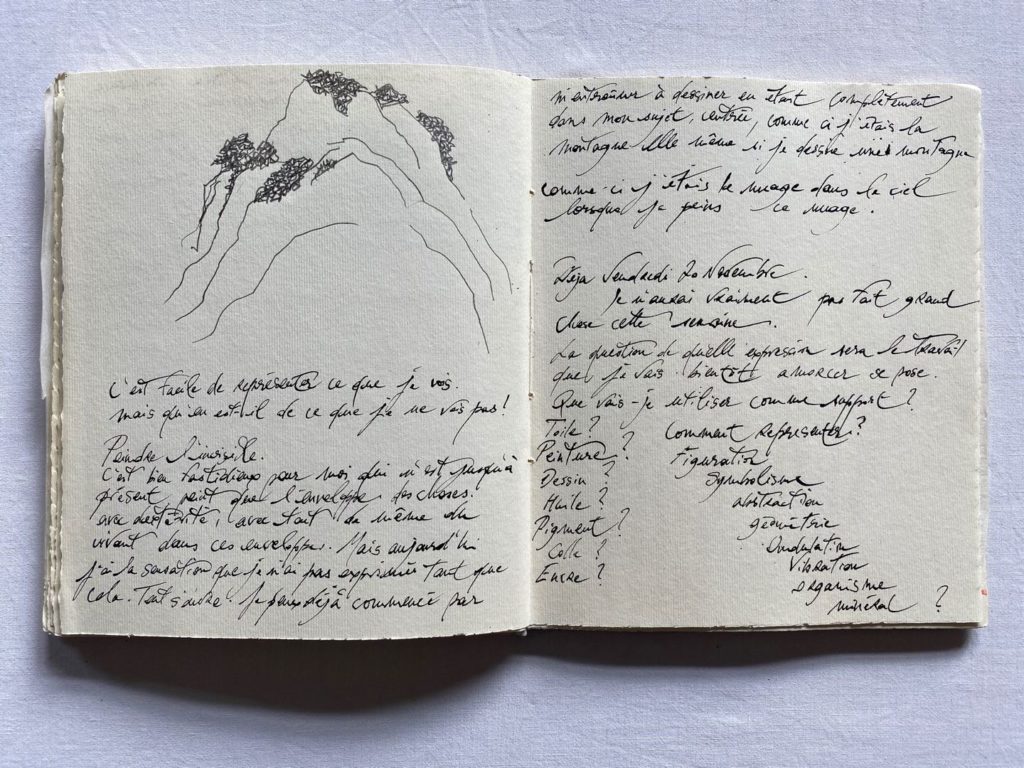 C'est facile de représenter ce que je vois.
mais qu'en est-il de ce que je ne vois pas!
Peindre l'invisible.
C'est bien fastidieux pour moi, qui n'est jusqu'à
présent, peint que l'enveloppe des choses.
avec dextérité, avec tout de même du
vivant dans ces enveloppes. Mais aujourd'hui
j'ai la sensation que je n'ai pas exprimée tant que
cela. Tout s'ouvre. Je peux déjà commencé par
m'entraîner à dessiner en étant complètement
dans mon sujet, centrée, comme ci j'étais la
montagne elle même si je dessine une montagne
comme-ci j'étais le nuage dans le ciel
lorsque je peins ce nuage.
Déja Vendredi 20 Novembre.
Je n'aurai vraiment pas fait grand
chose cette semaine.
La question de quelle expression sera le travail
que je vais bientôt amorcer se pose.
Que vais-je utiliser comme support?
Toile? Comment représenter?
Peinture? Figuration
Dessin? Symbolisme
Huile? abstraction
Pigment? géométrie
Colle? Ondulation
Encre? Vibration
organisme
minéral ?